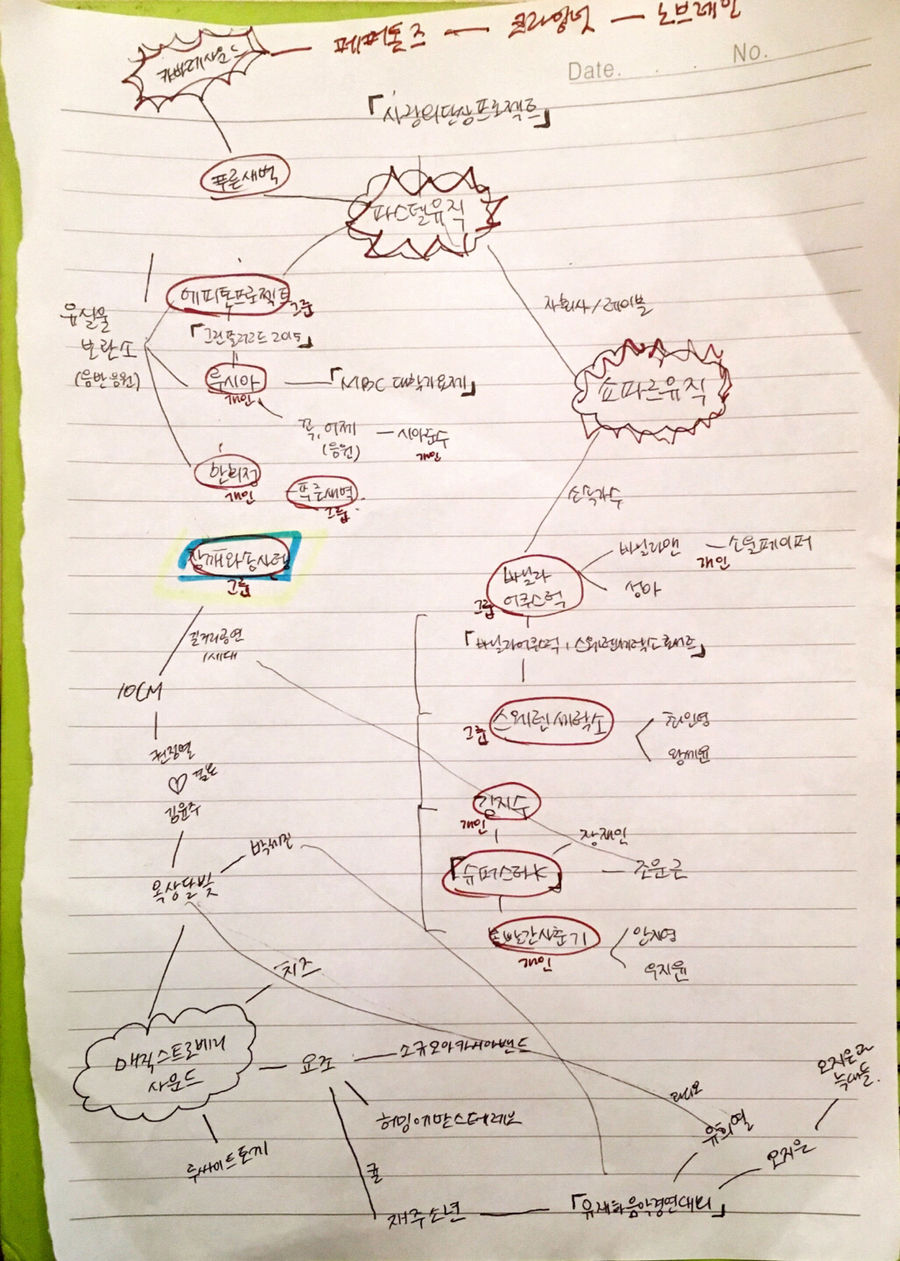 카바레사운드 — 페퍼톤즈 — 크라잉넛 — 노브레인
Date. . . No.
「사랑의단상프로젝트」
푸른새벽
파스텔뮤직
에피톤프로젝트
그룹
자회사/레이블
유실물
보관소
(음반음원)
「그린플러그드 2015」
쇼파르뮤직
루시아 — 「MBC 대학가요제」
개인
꼭, 어제 — 시아준수
(음원) 개인
한희정
개인
푸른새벽
그룹
소속가수
참깨와솜사탕
그룹
바닐라
어쿠스틱
그룹
바닐라맨 — 소울페이퍼
개인
성아
길거리공연
1세대
「바닐라어쿠스틱, 스웨덴세탁소
10CM
스웨덴세탁소
그룹
최인영
왕세윤
권정열
♡ 결혼
김윤주
김지수
개인
장재인
「슈퍼스타K」 — 조문근
박세진
옥상달빛
볼빨간사춘기
개인
안지영
우지윤
치즈
매직스트로베리
사운드
요조 — 소규모아카시아밴드
오지은과
늑대들.
라디오
허밍어반스테레오
유희열
오지은
투싸이트토끼
귤
재주소년 — 「유재하음악경연대회」